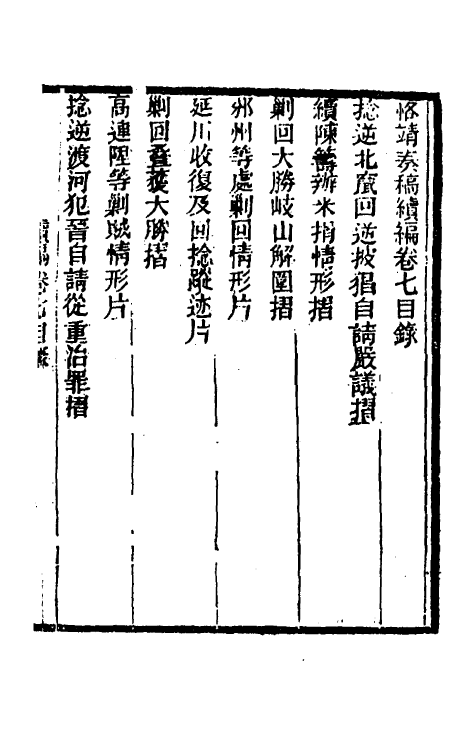 恪靖奏稿續編卷七目錄
捻逆北竄回逆披猖自請嚴議摺
續陳籌辦米捐情形摺
剿回大勝岐山解圍摺
邠州等處剿回情形片
延川收復及回捻蹤迹片
剿回疊獲大勝摺
高連陞等剿賊情形片
捻逆渡河犯晉自請從重治罪摺
續編卷七目錄